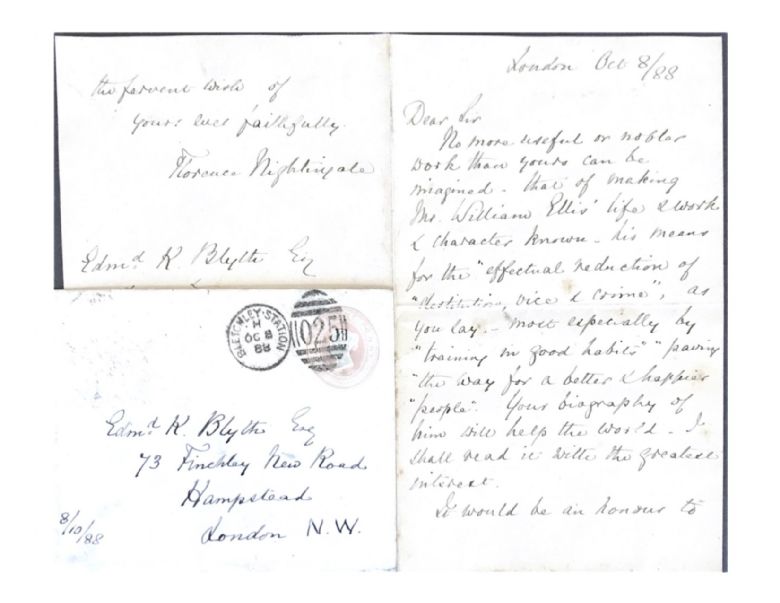 London Oct 8/88
Dear Sir
No more useful or nobler
work than yours can be
imagined - that of making
Mr. William Ellis' life & work
& character known - his means
for the "effectual reduction of
"destitution, vice & crime", as
you say - most especially by
"training in good habits" "paving
"the way for a better & happier
"people". Your biography of
him will help the world - I
shall read it with the greatest
interest.
It would be an honour to
the fervent wish of
yours ever faithfully
Florence Nightingale
Edmd K. Blyth Esq
BLETCHLEY-STATION
H
OC 8
88
025
Edmd K. Blyth Esq
73 Finchley New Road
Hampstead
London N.W.
8/10/88